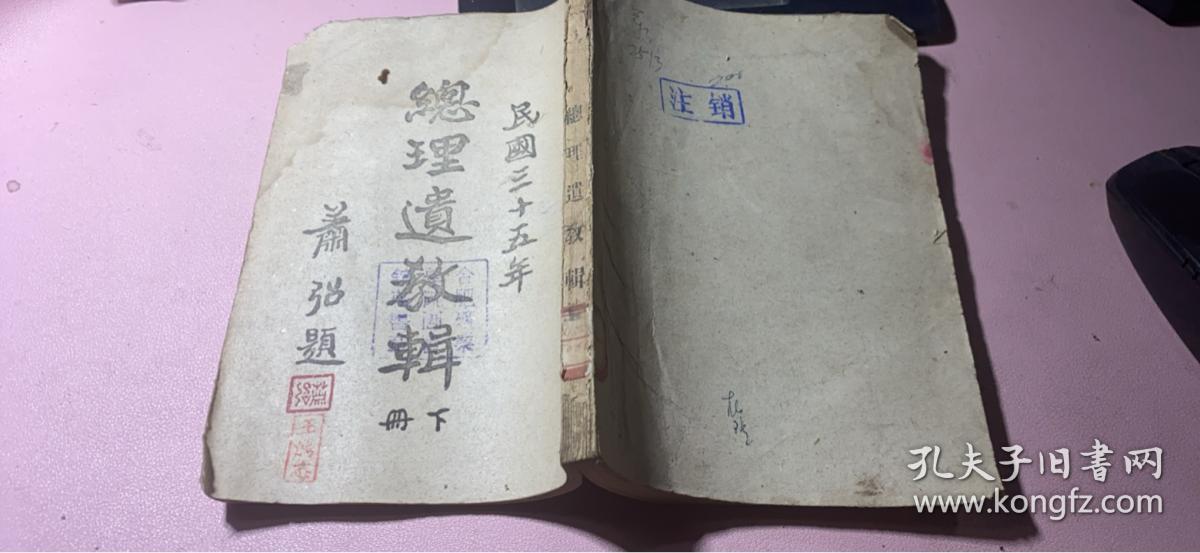 民國三十五年
總理遺教輯
下冊
蕭弘題
總理遺教輯
注销
2513
孔夫子旧书网
www.kongfz.com